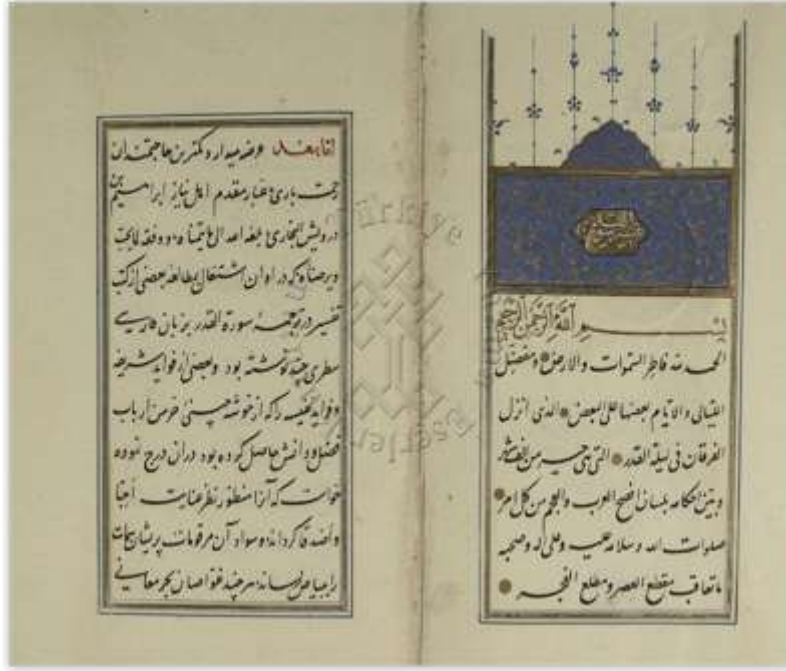 بسم الله الرحمن الرحيم
الحمد لله فاطر السموات والارض ومفضل
الليالی والایام بعضها علی البعض الذی انزل
الفرقان فی لیلة القدر التی هی خیر من الف شهر
وبین احکامه بلسان افصح العرب والعجم من کل امر
صلوات الله وسلامه علیه وعلی اله وصحبه
ماتعاقب مقطع العصر ومطلع الفجر
اما بعد عرضه میدارد کمترین حاجتمندان
رحمت باری غبار مقدم اهل نیاز ابراهیم بن
درویش البخاری بلغه الله ال ما یتمناه ووفقه لما یحب
ویرضاه که در اوان اشتغال بمطالعه بعضی از کتب
تفسیر در ترجمهٔ سورة القدر بزبان فارسی
سطری چند نوشته بود وبعضی از فواید شریفه
وفواید نفیسه را که از خوشه چینی خرمن ارباب
فضل ودانش حاصل کرده بود دران درج نموده
خواست که آنرا منظور نظر عنایت احبا
واصدقا کرداند وسواد آن مرقومات پریشان
را ببیاض رساند هر چند غواصان بحر معانی
Türkiye